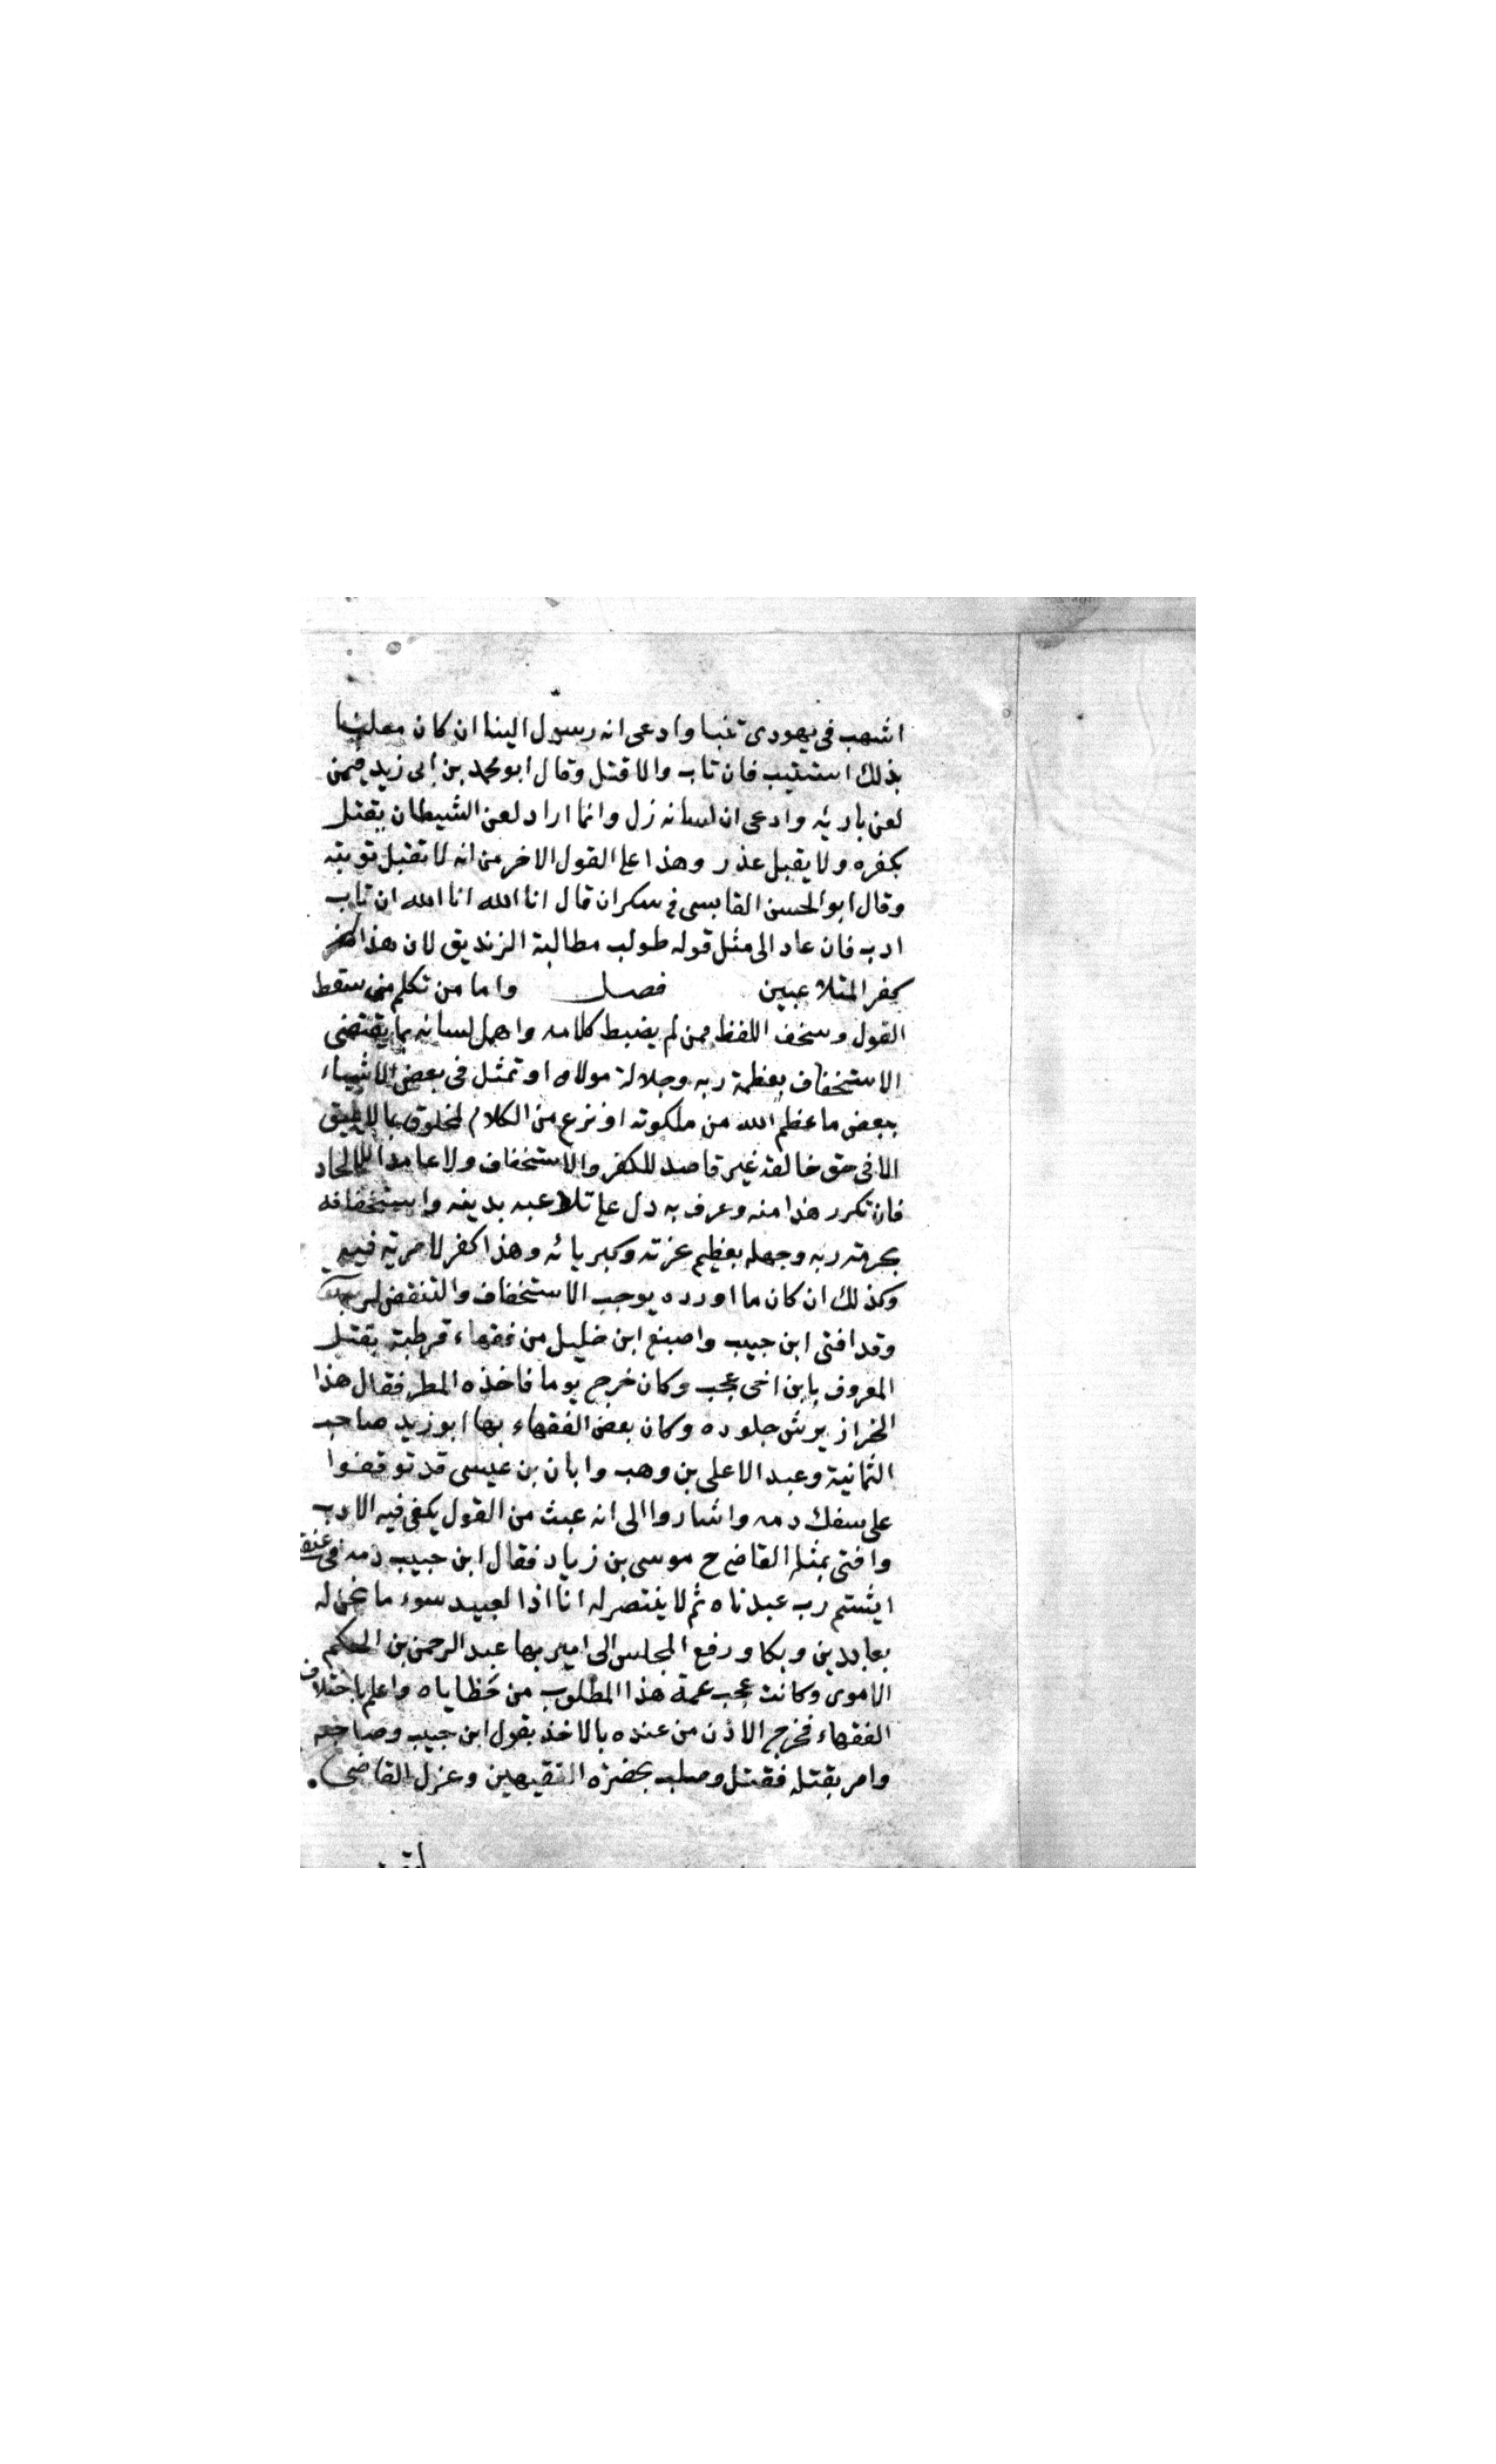 اشهب فى يهودى تنبا وادعى انه رسول الينا ان كان معلنا
بذلك استتيب فان تاب والا قتل وقال ابو محمد بن ابى زيد فيمن
لعن بارئه وادعى ان لسانه زل وانما اراد لعن الشيطان يقتل
بكفره ولا يقبل عذر وهذا على القول الاخر من انه لا تقبل توبته
وقال ابو الحسن القابسى فى سكران قال انا الله انا الله ان تاب
ادب فان عاد الى مثل قوله طولب مطالبة الزنديق لان هذا كفر
كفر المتلاعبين فصل واما من تكلم من سقط
القول وسخف اللفظ ممن لم يضبط كلامه واهمل لسانه بما يقتضى
الاستخفاف بعظمة ربه وجلالة مولاه او تمثل فى بعض الاشياء
ببعض ما عظم الله من ملكوته او نزع من الكلام لمخلوق بما لا يليق
الا فى حق خالقه غير قاصد للكفر والاستخفاف ولا عامدا للالحاد
فان تكرر هذا منه وعرف به دل على تلاعبه بدينه واستخفافه
بحرمة ربه وجهله بعظيم عزته وكبريائه وهذا كفر لا مرية فيه
وكذلك ان كان ما اورده يوجب الاستخفاف والتنقص لربه
وقد افتى ابن حبيب واصبغ ابن خليل من فقهاء قرطبة بقتل
المعروف بابن اخى عجب وكان خرج يوما فاخذه المطر فقال هذا
الخراز يرش جلوده وكان بعض الفقهاء بها ابو زيد صاحب
الثمانية وعبد الاعلى بن وهب وابان بن عيسى قد توقفوا
على سفك دمه واشاروا الى انه عبث من القول يكفى فيه الادب
وافتى بمثله القاضى ح موسى بن زياد فقال ابن حبيب دمه فى عنقى
ايشتم رب عبدناه ثم لا ينتصر له انا اذا لعبيد سوء ما نحن له
بعابدين وبكا ورفع المجلس الى امير بها عبد الرحمن بن الحكم
الاموى وكانت عجب عمة هذا المطلوب من حظاياه واعلم باختلاف
الفقهاء فخرج الاذن من عنده بالاخذ بقول ابن حبيب وصاحبه
وامر بقتله فقتل وصلب بحضرة الفقيهين وعزل القاضى